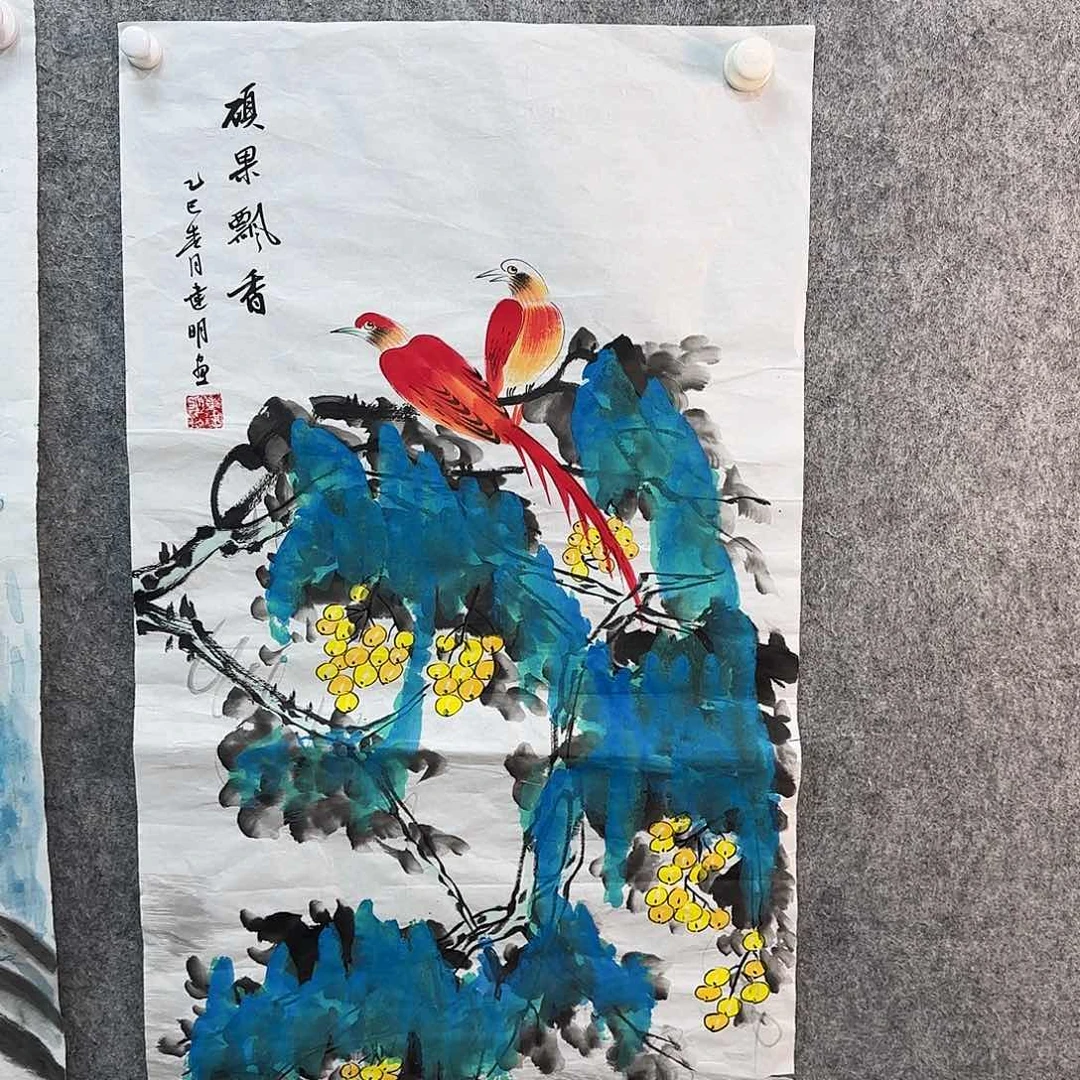 碩果飄香
乙巳春月建明画